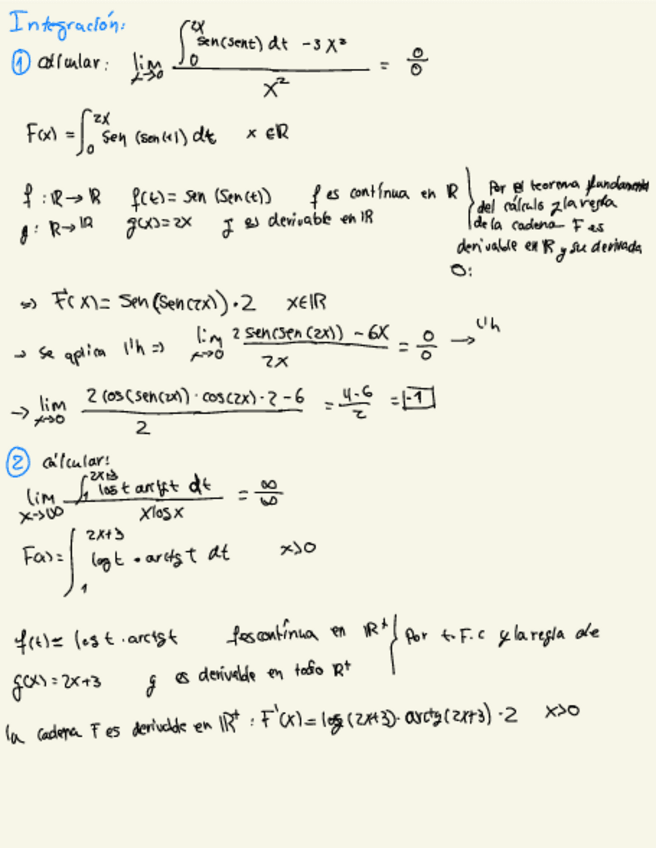 Integración:
① Cálcular: lim x→0 (∫₀^{2x} sen(sent) dt - 3x²) / x² = 0/0
F(x) = ∫₀^{2x} sen (sen(t)) dt x ∈ ℝ
f : ℝ → ℝ f(t) = sen (sen(t)) f es contínua en ℝ
g : ℝ → ℝ g(x) = 2x g es derivable en ℝ
} Por el teorema fundamental
del cálculo y la regla
de la cadena F es
derivable en ℝ y su derivada
=> F'(x) = sen(sen(2x)) · 2 x ∈ ℝ
→ se aplica l'h => lim x→0 (2 sen(sen (2x)) - 6x) / 2x = 0/0 → l'h
→ lim x→0 (2 cos(sen(2x)) · cos(2x) · 2 - 6) / 2 = (4-6)/2 = -1
② cálcular:
lim x→∞ (∫₁^{2x+3} log t arctg t dt) / (x log x) = ∞/∞
F(x) = ∫₁^{2x+3} log t · arctg t dt x>0
f(t) = log t · arctg t f es contínua en ℝ⁺ } Por t.F.c y la regla de
g(x) = 2x+3 g es derivable en todo ℝ⁺
la cadena F es derivable en ℝ⁺ : F'(x) = log (2x+3) · arctg (2x+3) · 2 x>0